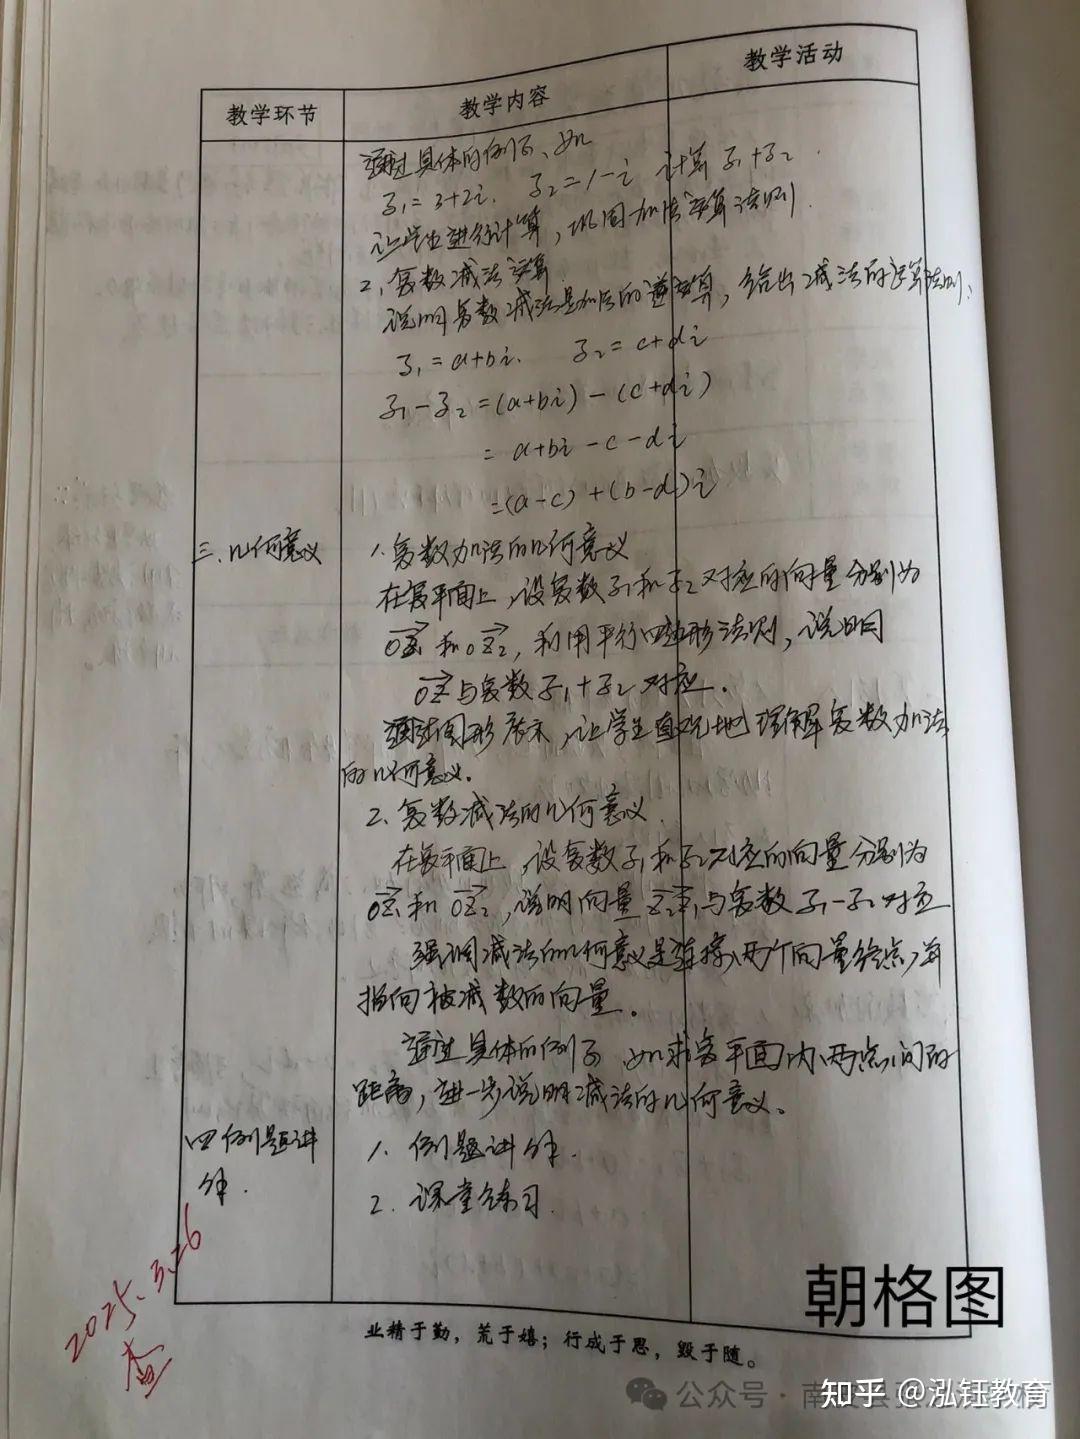 教学环节
教学内容
教学活动
通过具体的例子、如
z₁=3+2i, z₂=1-i 计算 z₁+z₂.
让学生进行计算,巩固加法运算法则.
2、复数减法运算
说明复数减法是加法的逆运算,给出减法的运算法则:
z₁=a+bi. z₂=c+di
z₁-z₂=(a+bi)-(c+di)
=a+bi-c-di
=(a-c)+(b-d)i
三、几何意义
1.复数加法的几何意义
在复平面上,设复数z₁和z₂对应的向量分别为
OZ₁和OZ₂,利用平行四边形法则,说明
OZ与复数z₁+z₂对应.
通过图形展示,让学生直观地理解复数加法
的几何意义.
2.复数减法的几何意义.
在复平面上,设复数z₁和z₂对应的向量分别为
OZ₁和OZ₂,说明向量Z₂Z₁与复数z₁-z₂对应
强调减法的几何意义是连接两个向量终点,并
指向被减数的向量.
通过具体的例子 如求复平面内两点间的
距离,进一步说明减法的几何意义.
四例题讲
解.
1. 例题讲解.
2. 课堂练习.
2025.3.26
查
朝格图
业精于勤,荒于嬉;行成于思,毁于随。
公众号·南
知乎 @泓钰教育